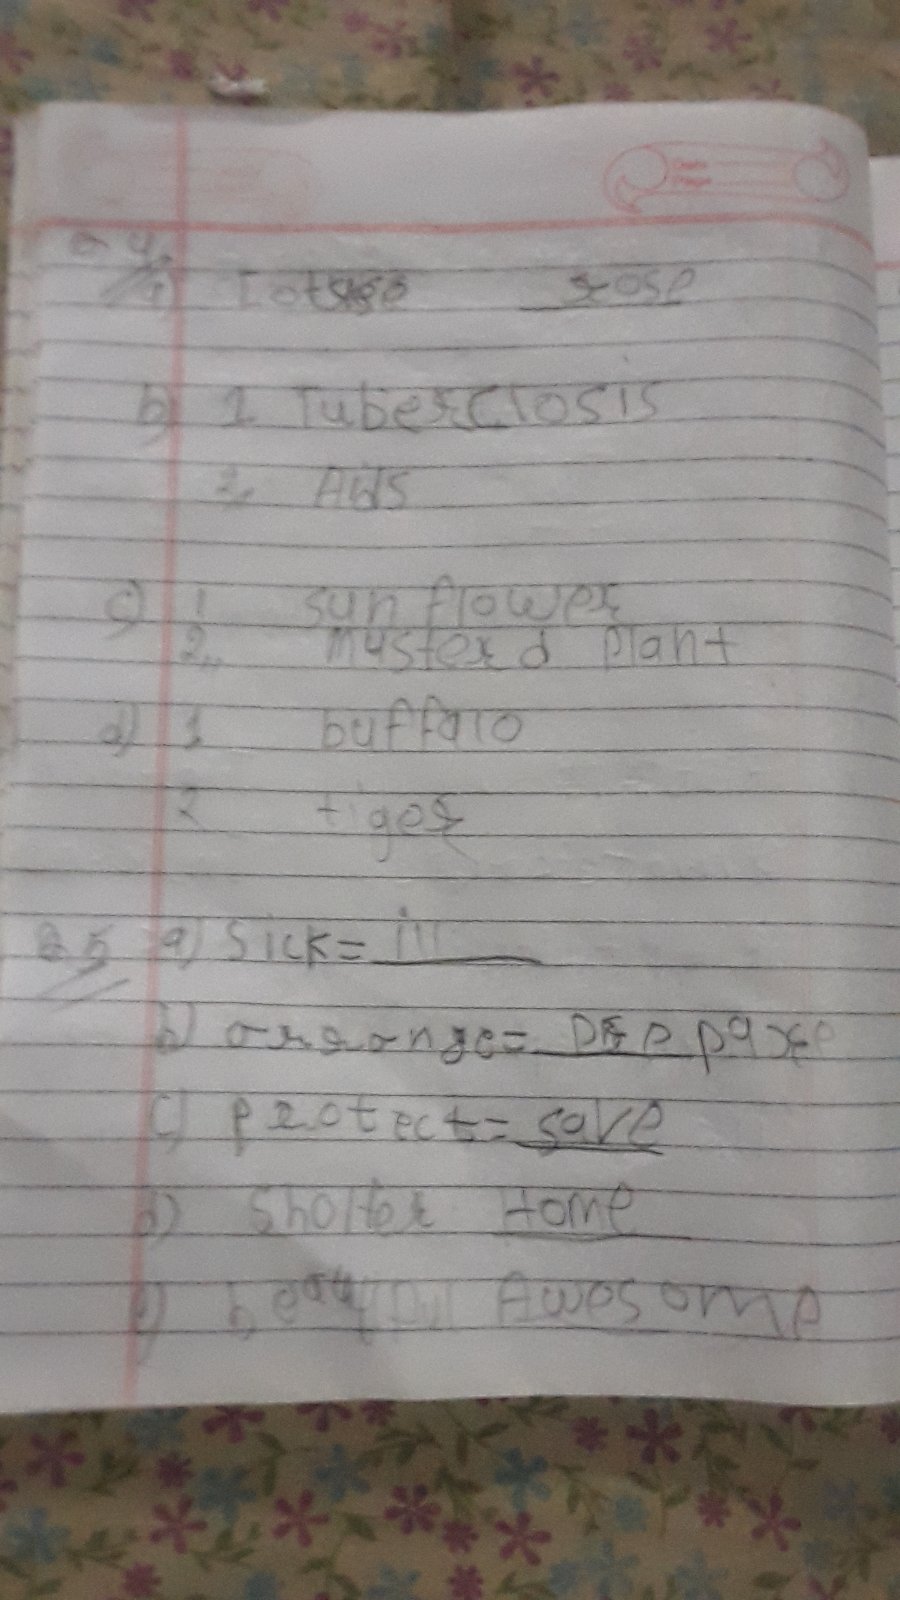 Q 4.
a) Lotus rose
b) 1 Tuberclosis
2. Aids
c) 1 sun flower
2. musterd plant
d) 1 buffalo
2 tiger
Q 5 a) Sick = ill
b) arrange = prepare
c) protect = save
d) Sholter Home
e) Awesome